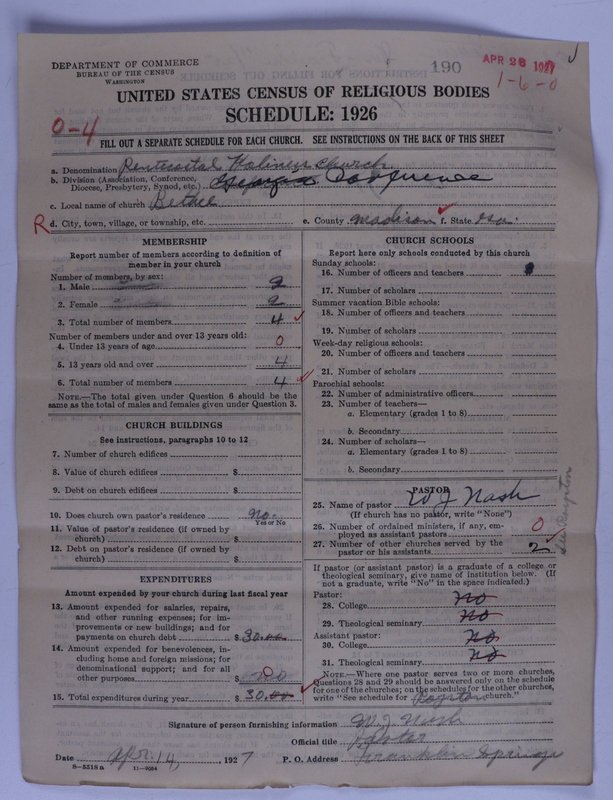 DEPARTMENT OF COMMERCE
BUREAU OF THE CENSUS
WASHINGTON
190
APR 28 1927
1-6-0
UNITED STATES CENSUS OF RELIGIOUS BODIES
SCHEDULE: 1926
0-4
FILL OUT A SEPARATE SCHEDULE FOR EACH CHURCH. SEE INSTRUCTIONS ON THE BACK OF THIS SHEET
a. Denomination Pentecostal Holiness Church
b. Division (Association, Conference, Diocese, Presbytery, Synod, etc.) Georgia Conference
c. Local name of church Bethel
R d. City, town, village, or township, etc.
e. County Madison f. State Ga.
MEMBERSHIP
Report number of members according to definition of
member in your church
Number of members, by sex:
1. Male 2
2. Female 2
3. Total number of members 4
Number of members under and over 13 years old:
4. Under 13 years of age 0
5. 13 years old and over 4
6. Total number of members 4
NOTE.—The total given under Question 6 should be the
same as the total of males and females given under Question 3.
CHURCH BUILDINGS
See instructions, paragraphs 10 to 12
7. Number of church edifices
8. Value of church edifices $
9. Debt on church edifices $
10. Does church own pastor's residence No.
Yes or No
11. Value of pastor's residence (if owned by
church) $
12. Debt on pastor's residence (if owned by
church) $
EXPENDITURES
Amount expended by your church during last fiscal year
13. Amount expended for salaries, repairs,
and other running expenses; for im-
provements or new buildings; and for
payments on church debt $ 30.00
14. Amount expended for benevolences, in-
cluding home and foreign missions; for
denominational support; and for all
other purposes $ no 0
15. Total expenditures during year $ 30.00
CHURCH SCHOOLS
Report here only schools conducted by this church
Sunday schools:
16. Number of officers and teachers
17. Number of scholars
Summer vacation Bible schools:
18. Number of officers and teachers
19. Number of scholars
Week-day religious schools:
20. Number of officers and teachers
21. Number of scholars
Parochial schools:
22. Number of administrative officers
23. Number of teachers—
a. Elementary (grades 1 to 8)
b. Secondary
24. Number of scholars—
a. Elementary (grades 1 to 8)
b. Secondary
PASTOR
25. Name of pastor W J Nash
(If church has no pastor, write "None")
26. Number of ordained ministers, if any, em-
ployed as assistant pastors 0
27. Number of other churches served by the
pastor or his assistants 2
See Royston
If pastor (or assistant pastor) is a graduate of a college or
theological seminary, give name of institution below. (If
not a graduate, write "No" in the space indicated.)
Pastor:
28. College No
29. Theological seminary No
Assistant pastor:
30. College No
31. Theological seminary No
NOTE.—Where one pastor serves two or more churches,
Questions 28 and 29 should be answered only on the schedule
for one of the churches; on the schedules for the other churches,
write "See schedule for Royston church."
Signature of person furnishing information W. J. Nash
Official title Pastor
Date Apr. 14, 1927 P. O. Address Franklin Springs
8—5318a 11—9054